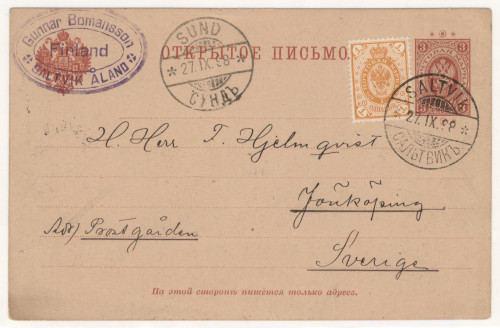 Gunnar Bomansson
Finland
SALTVIK ÅLAND
SUND
27.IX.98
СУНДЪ
ОТКРЫТОЕ ПИСЬМО
3
SALTVIK
27.IX.98
САЛЬТВИКЪ
H. Herr F. Hjelmqvist
Jönköping
Adr/ Postgården
Sverige
На этой сторонѣ пишется только адресъ.